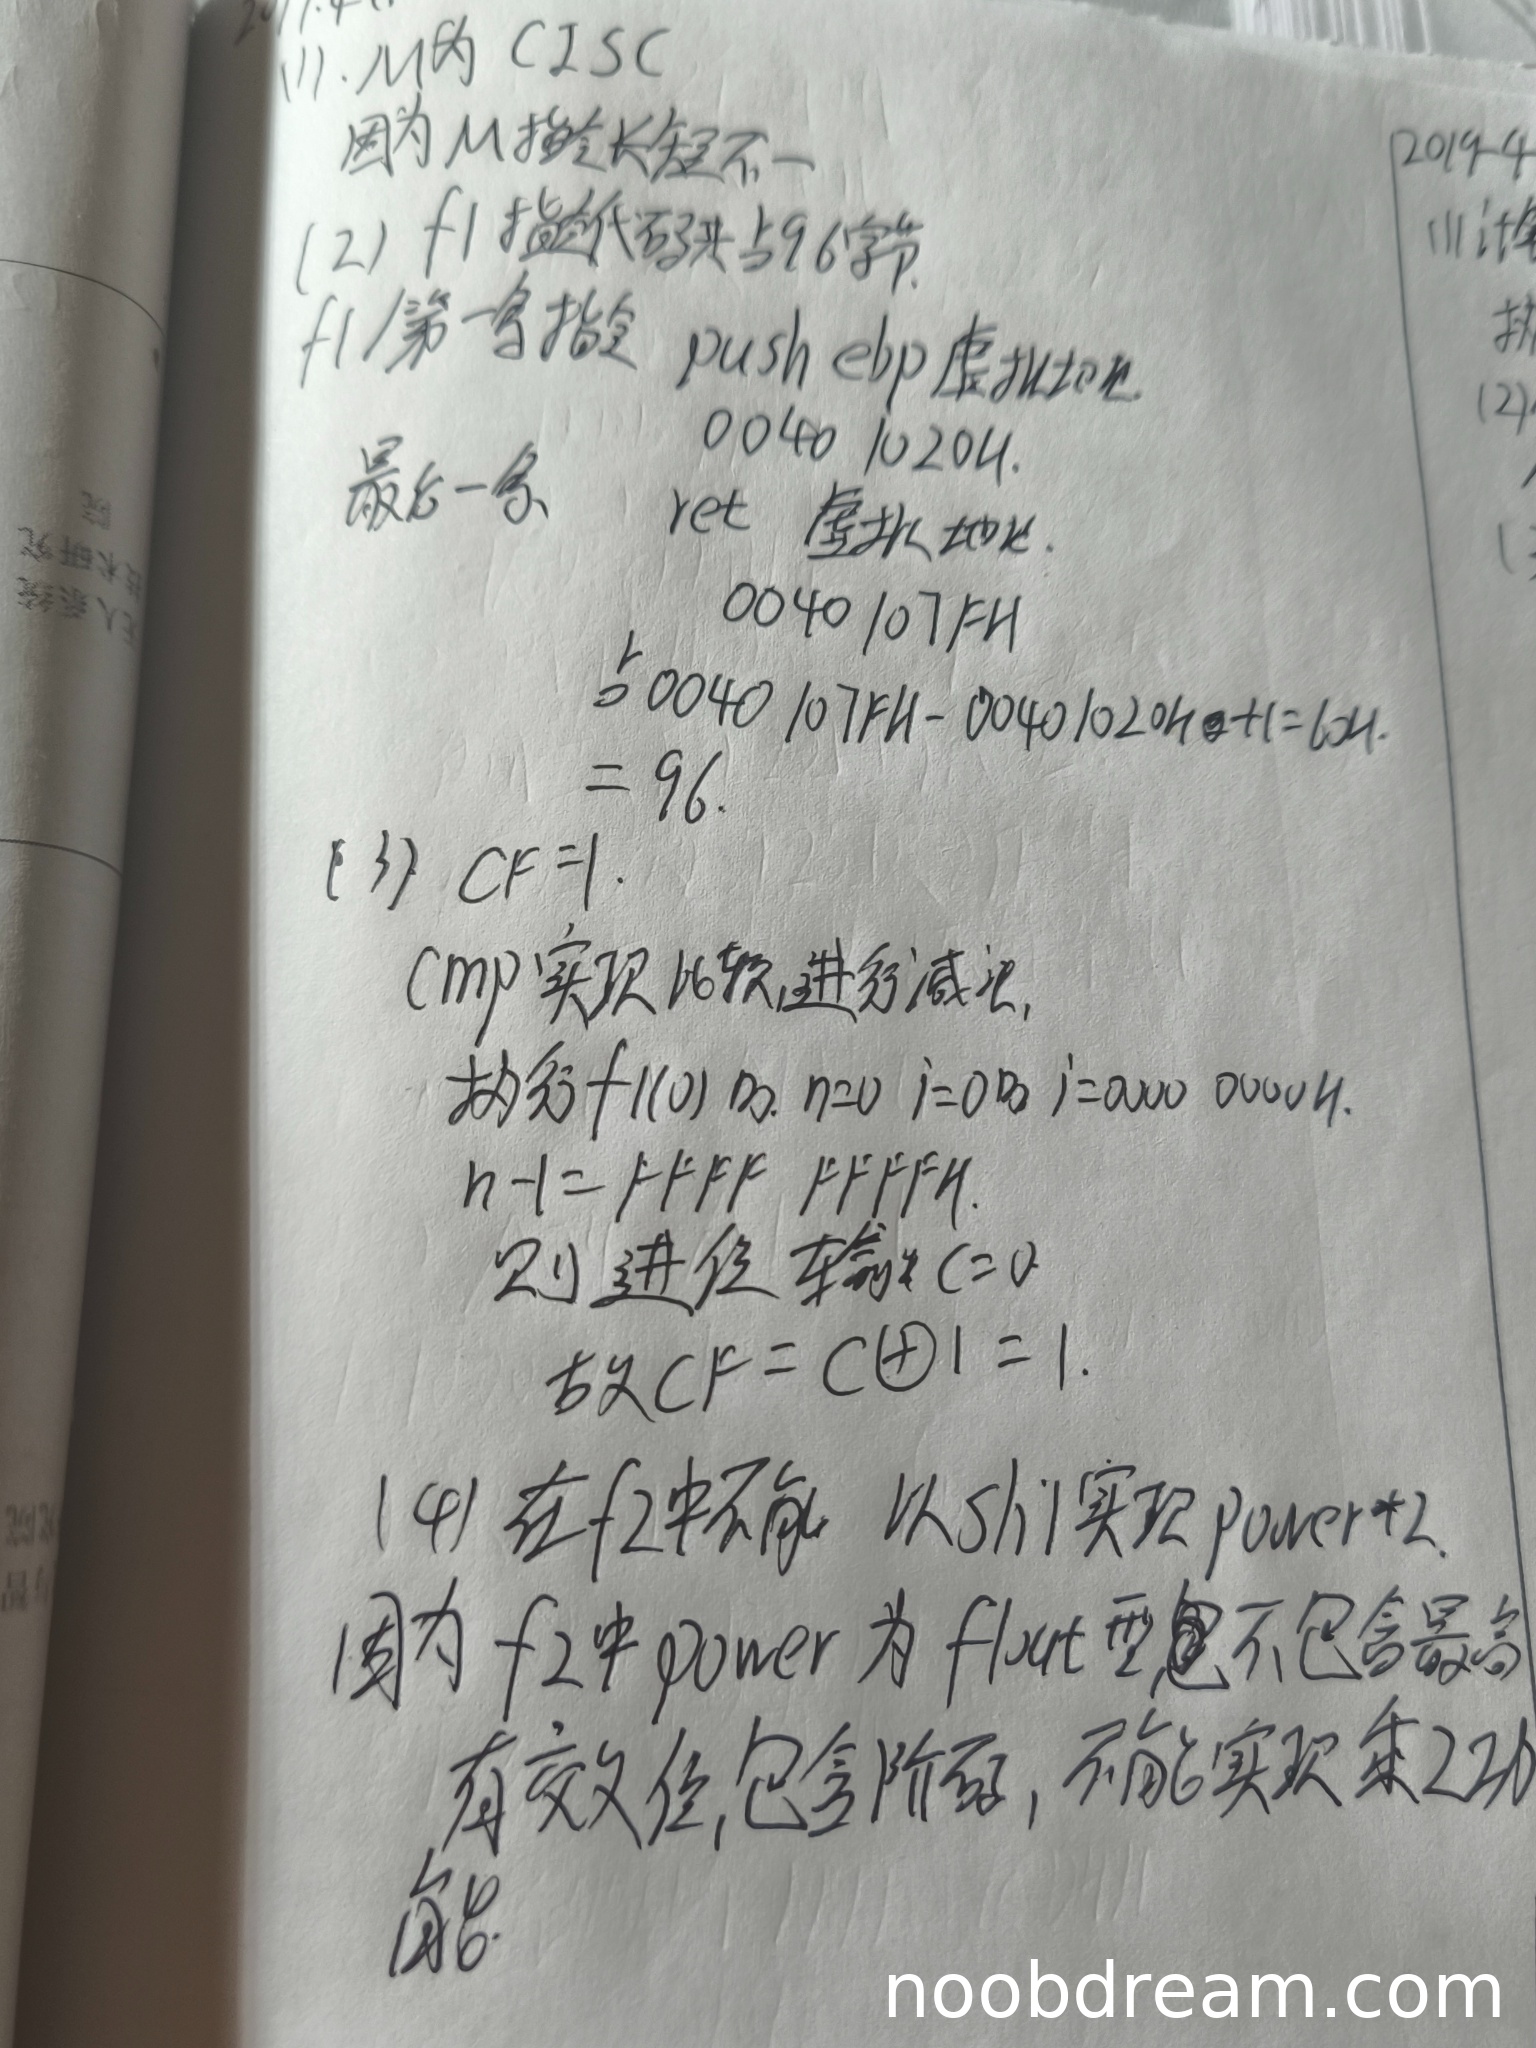 (1). M为 CISC
因为M指令长短不一
(2) f1指令代码共占96字节.
f1第一条指令 push ebp 虚拟地址.
0040 1020H.
最后一条 ret 虚拟地址.
0040 107FH
占0040 107FH - 0040 1020H +1=60H.
= 96.
(3) CF=1.
cmp实现比较,进行减法,
执行f1(0)时. n=0 i=0时 i=0000 0000H.
n-1= FFFF FFFFH.
则 进位 输出 C=0
故CF = C⊕1 = 1.
(4) 在f2中不能 以shl实现power*2.
因为 f2中power 为 float型 不包含最高
有效位,包含阶码, 不能实现乘2功
能.
2019-4
(2)
noobdream.com